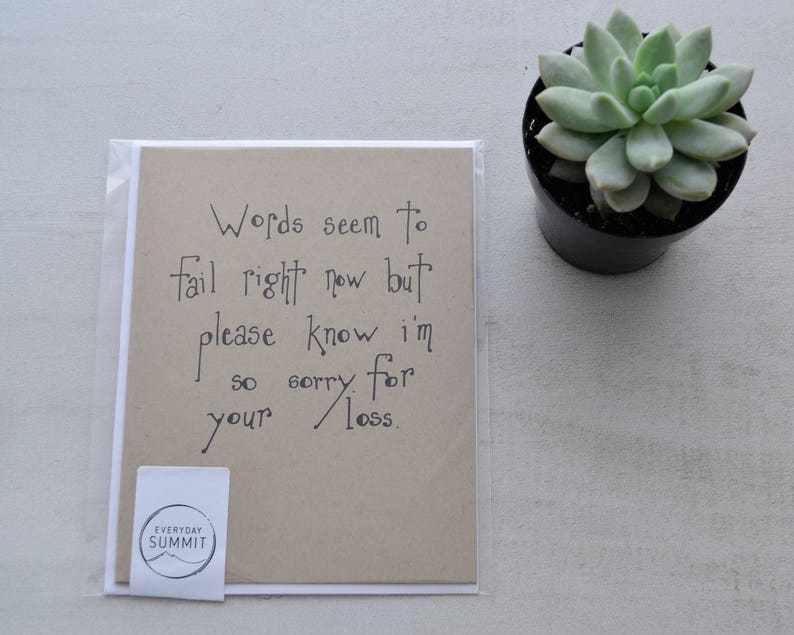 Words seem to
fail right now but
please know i'm
so sorry for
your loss.
EVERYDAY
SUMMIT